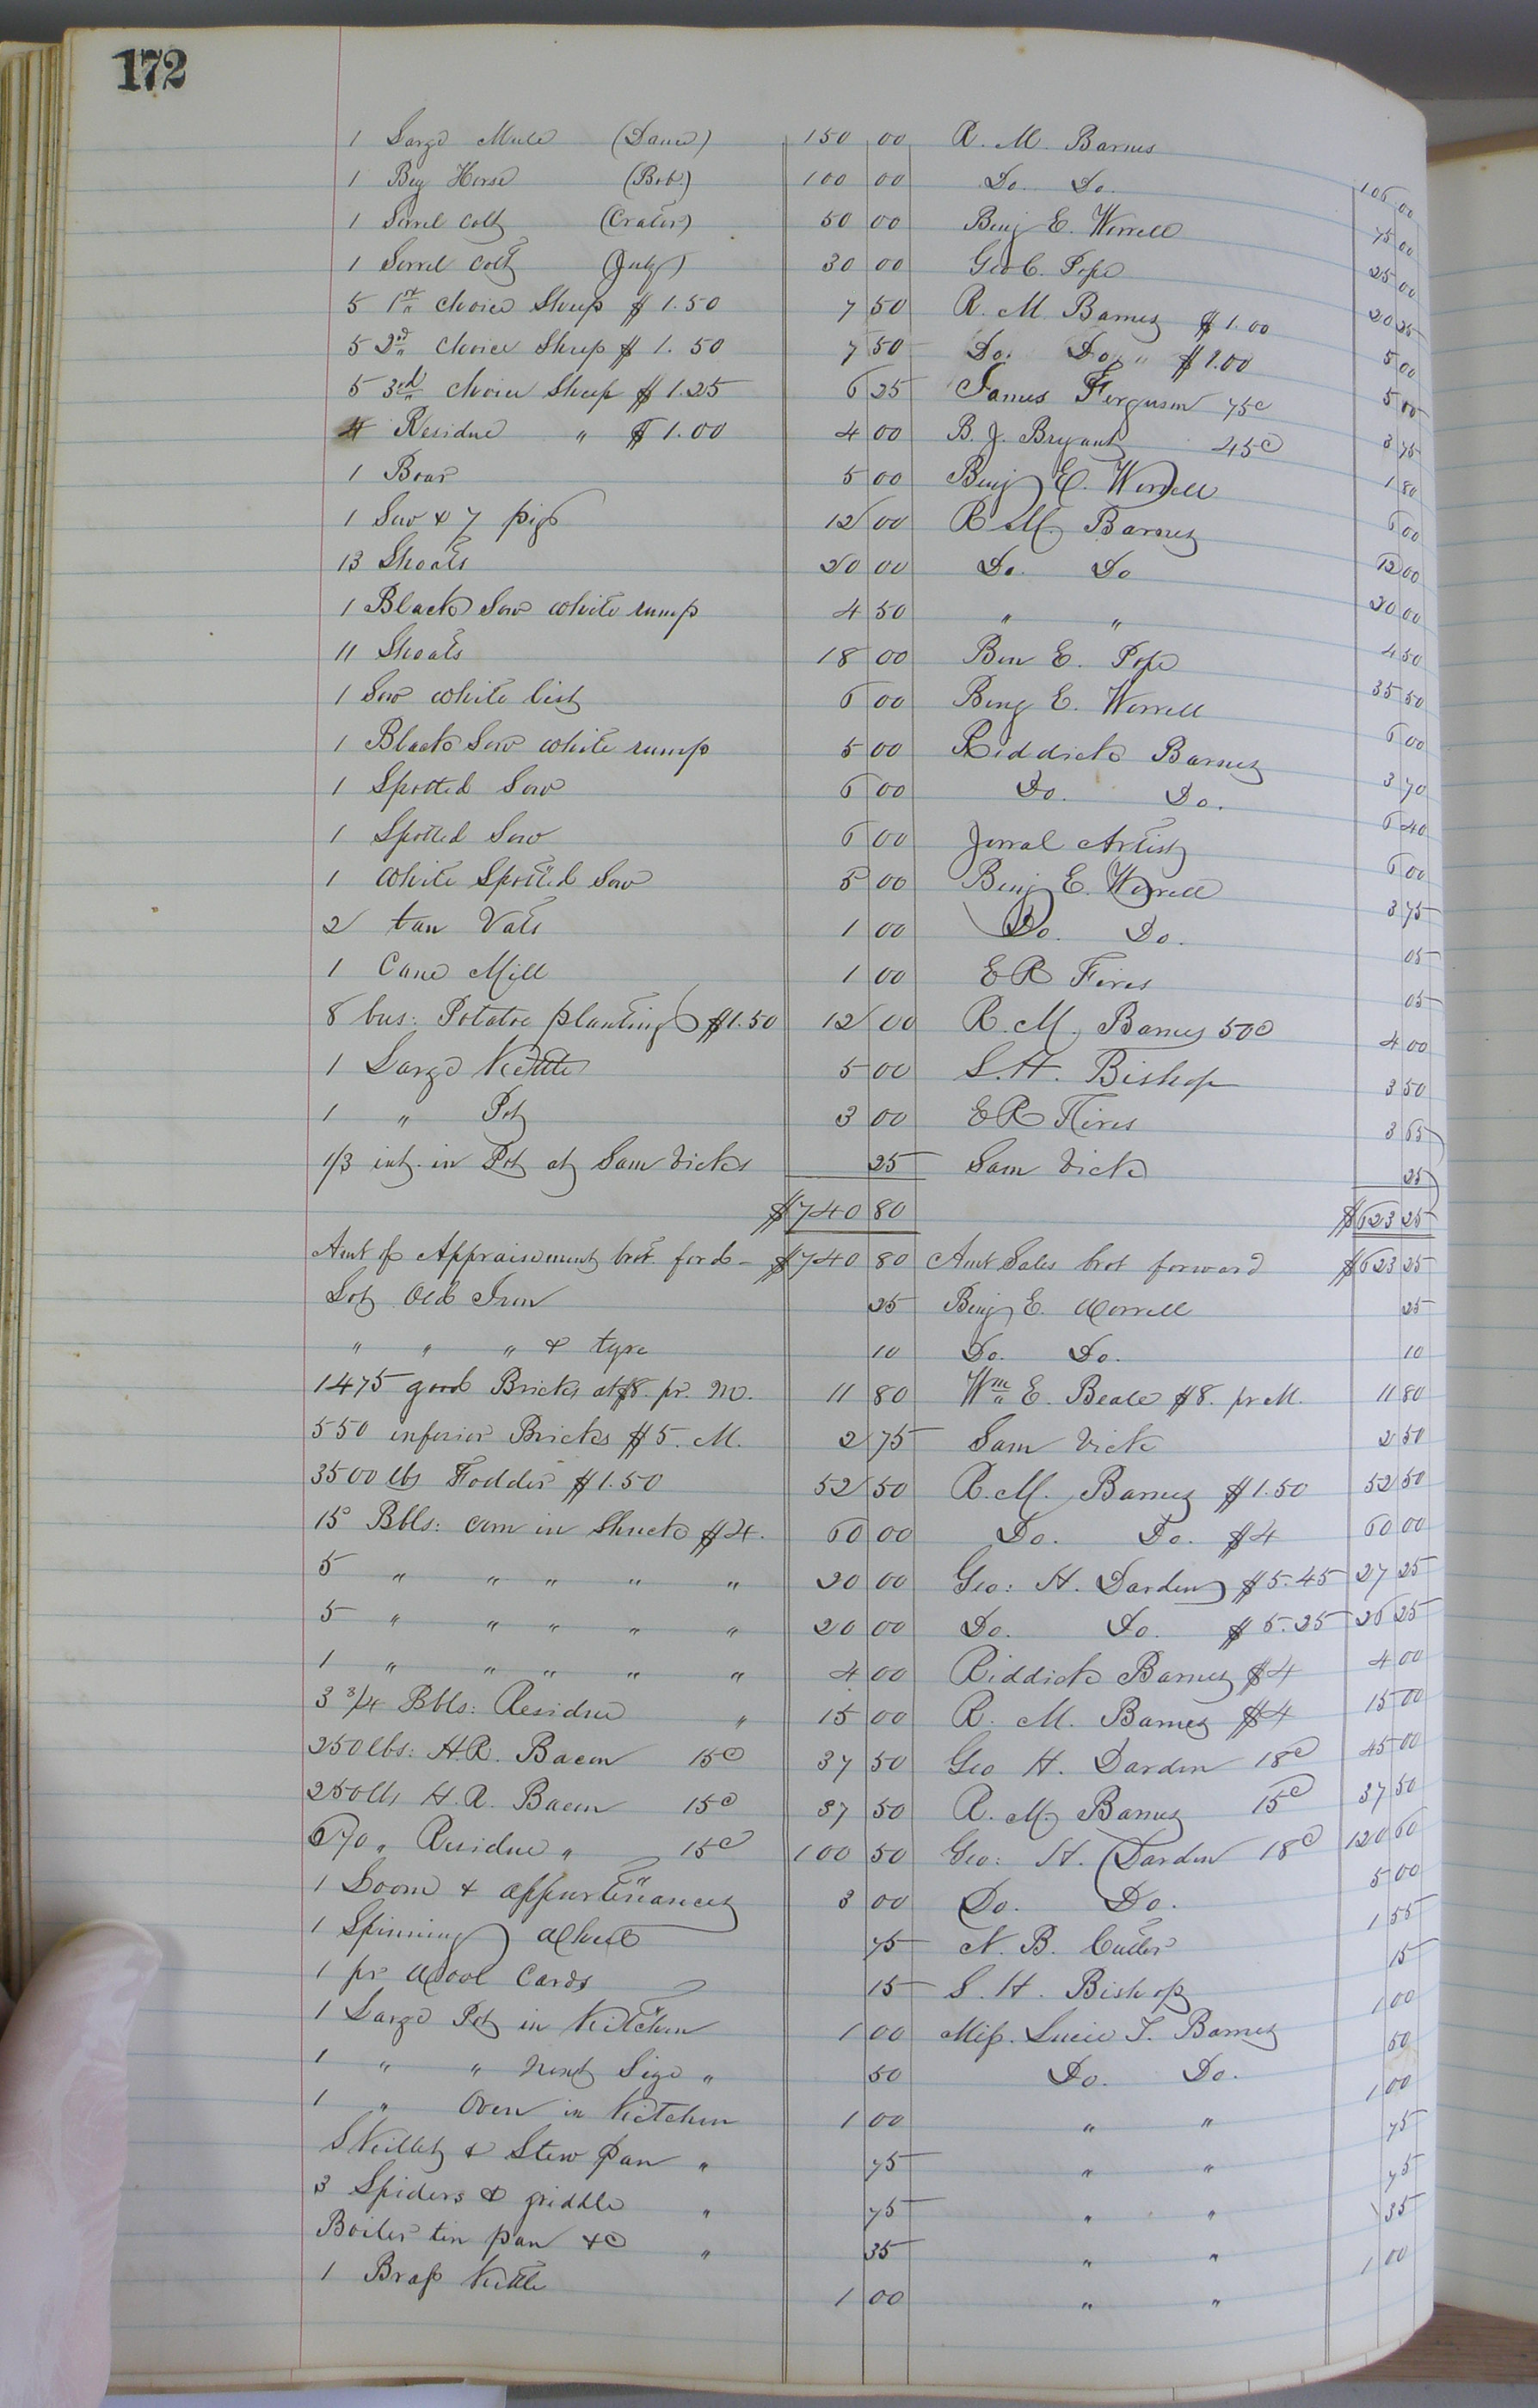 172
1 Large Mule (Dave) 150 00 R. M. Barnes 106 00
1 Bey Horse (Bob.) 100 00 Do. Do. 75 00
1 Sorrel Colt (Crater) 50 00 Benj E. Worrell 25 00
1 Sorrel Colt (July) 30 00 Geo C. Pope 20 25
5 1st choice Sheep $ 1.50 7 50 R. M. Barnes $1.00 5 00
5 2d choice Sheep $ 1.50 7 50 Do. Do. " $1.00 5 00
5 3d choice Sheep $ 1.25 6 25 James Ferguson 75c 3 75
4 Residue " $ 1.00 4 00 B. J. Bryant 45c 1 80
1 Boar 5 00 Benj E. Worrell 6 00
1 Sow & 7 pigs 12 00 R M. Barnes 12 00
13 Shoats 20 00 Do. Do 20 00
1 Black Sow white rump 4 50 " " 4 50
11 Shoats 18 00 Ben E. Pope 35 50
1 Sow white list 6 00 Benj E. Worrell 6 00
1 Black Sow white rump 5 00 Riddick Barnes 3 70
1 Spotted Sow 6 00 Do. Do. 6 40
1 Spotted Sow 6 00 Jorral Artist 6 00
1 White Spotted Sow 5 00 Benj E. Worrell 3 75
2 tan Vats 1 00 Do. Do. 05
1 Cane Mill 1 00 E R 05
8 bus: Potatoe planting $1.50 12 00 R. M. Barnes 50c 4 00
1 Large Kettle 5 00 S. H. Bishop 3 50
1 " Pot 3 00 E R 3 65
1/3 int. in Pot at Sam Vicks 25 Sam Vick 25
$740 80 $623 25
Amt of Appraisement brot. ford - $740 80 Amt Sales brot forward $623 25
Lot Old Iron 25 Benj E. Worrell 25
" " " & tyre 10 Do. Do. 10
1475 good Bricks at $8. pr. M. 11 80 Wm E. Beale $8. pr M. 11 80
550 inferior Bricks $5. M. 2 75 Sam Vick 2 50
3500 lbs Fodder $1.50 52 50 R. M. Barnes $1.50 52 50
15 Bbls: corn in Shuck $4. 60 00 Do. Do. $4 60 00
5 " " " " " 20 00 Geo: H. Darden $5.45 27 25
5 " " " " " 20 00 Do. Do. $5.25 26 25
1 " " " " " 4 00 Riddick Barnes $4 4 00
3 3/4 Bbls: Residue " 15 00 R. M. Barnes $4 15 00
250 lbs: H.R. Bacon 15c 37 50 Geo H. Darden 18c 45 00
250 lbs H.R. Bacon 15c 37 50 R. M. Barnes 15c 37 50
670 " Residue " 15c 100 50 Geo: H. Darden 18c 120 60
1 Loom & appurtenances 3 00 Do. Do. 5 00
1 Spinning Wheel 75 N. B. Cutler 1 55
1 pr Wool Cards 15 S. H. Bishop 15
1 Large Pot in Kitchen 1 00 Miss. Lucie T. Barnes 1 00
1 " " next Size " 50 Do. Do. 50
1 " Oven in Kitchen 1 00 " " 1 00
Skillet & Stew pan " 75 " " 75
3 Spiders & griddle " 75 " " 75
Boiler tin pan &c " 35 " " 35
1 Brass Kettle 1 00 " " 1 00